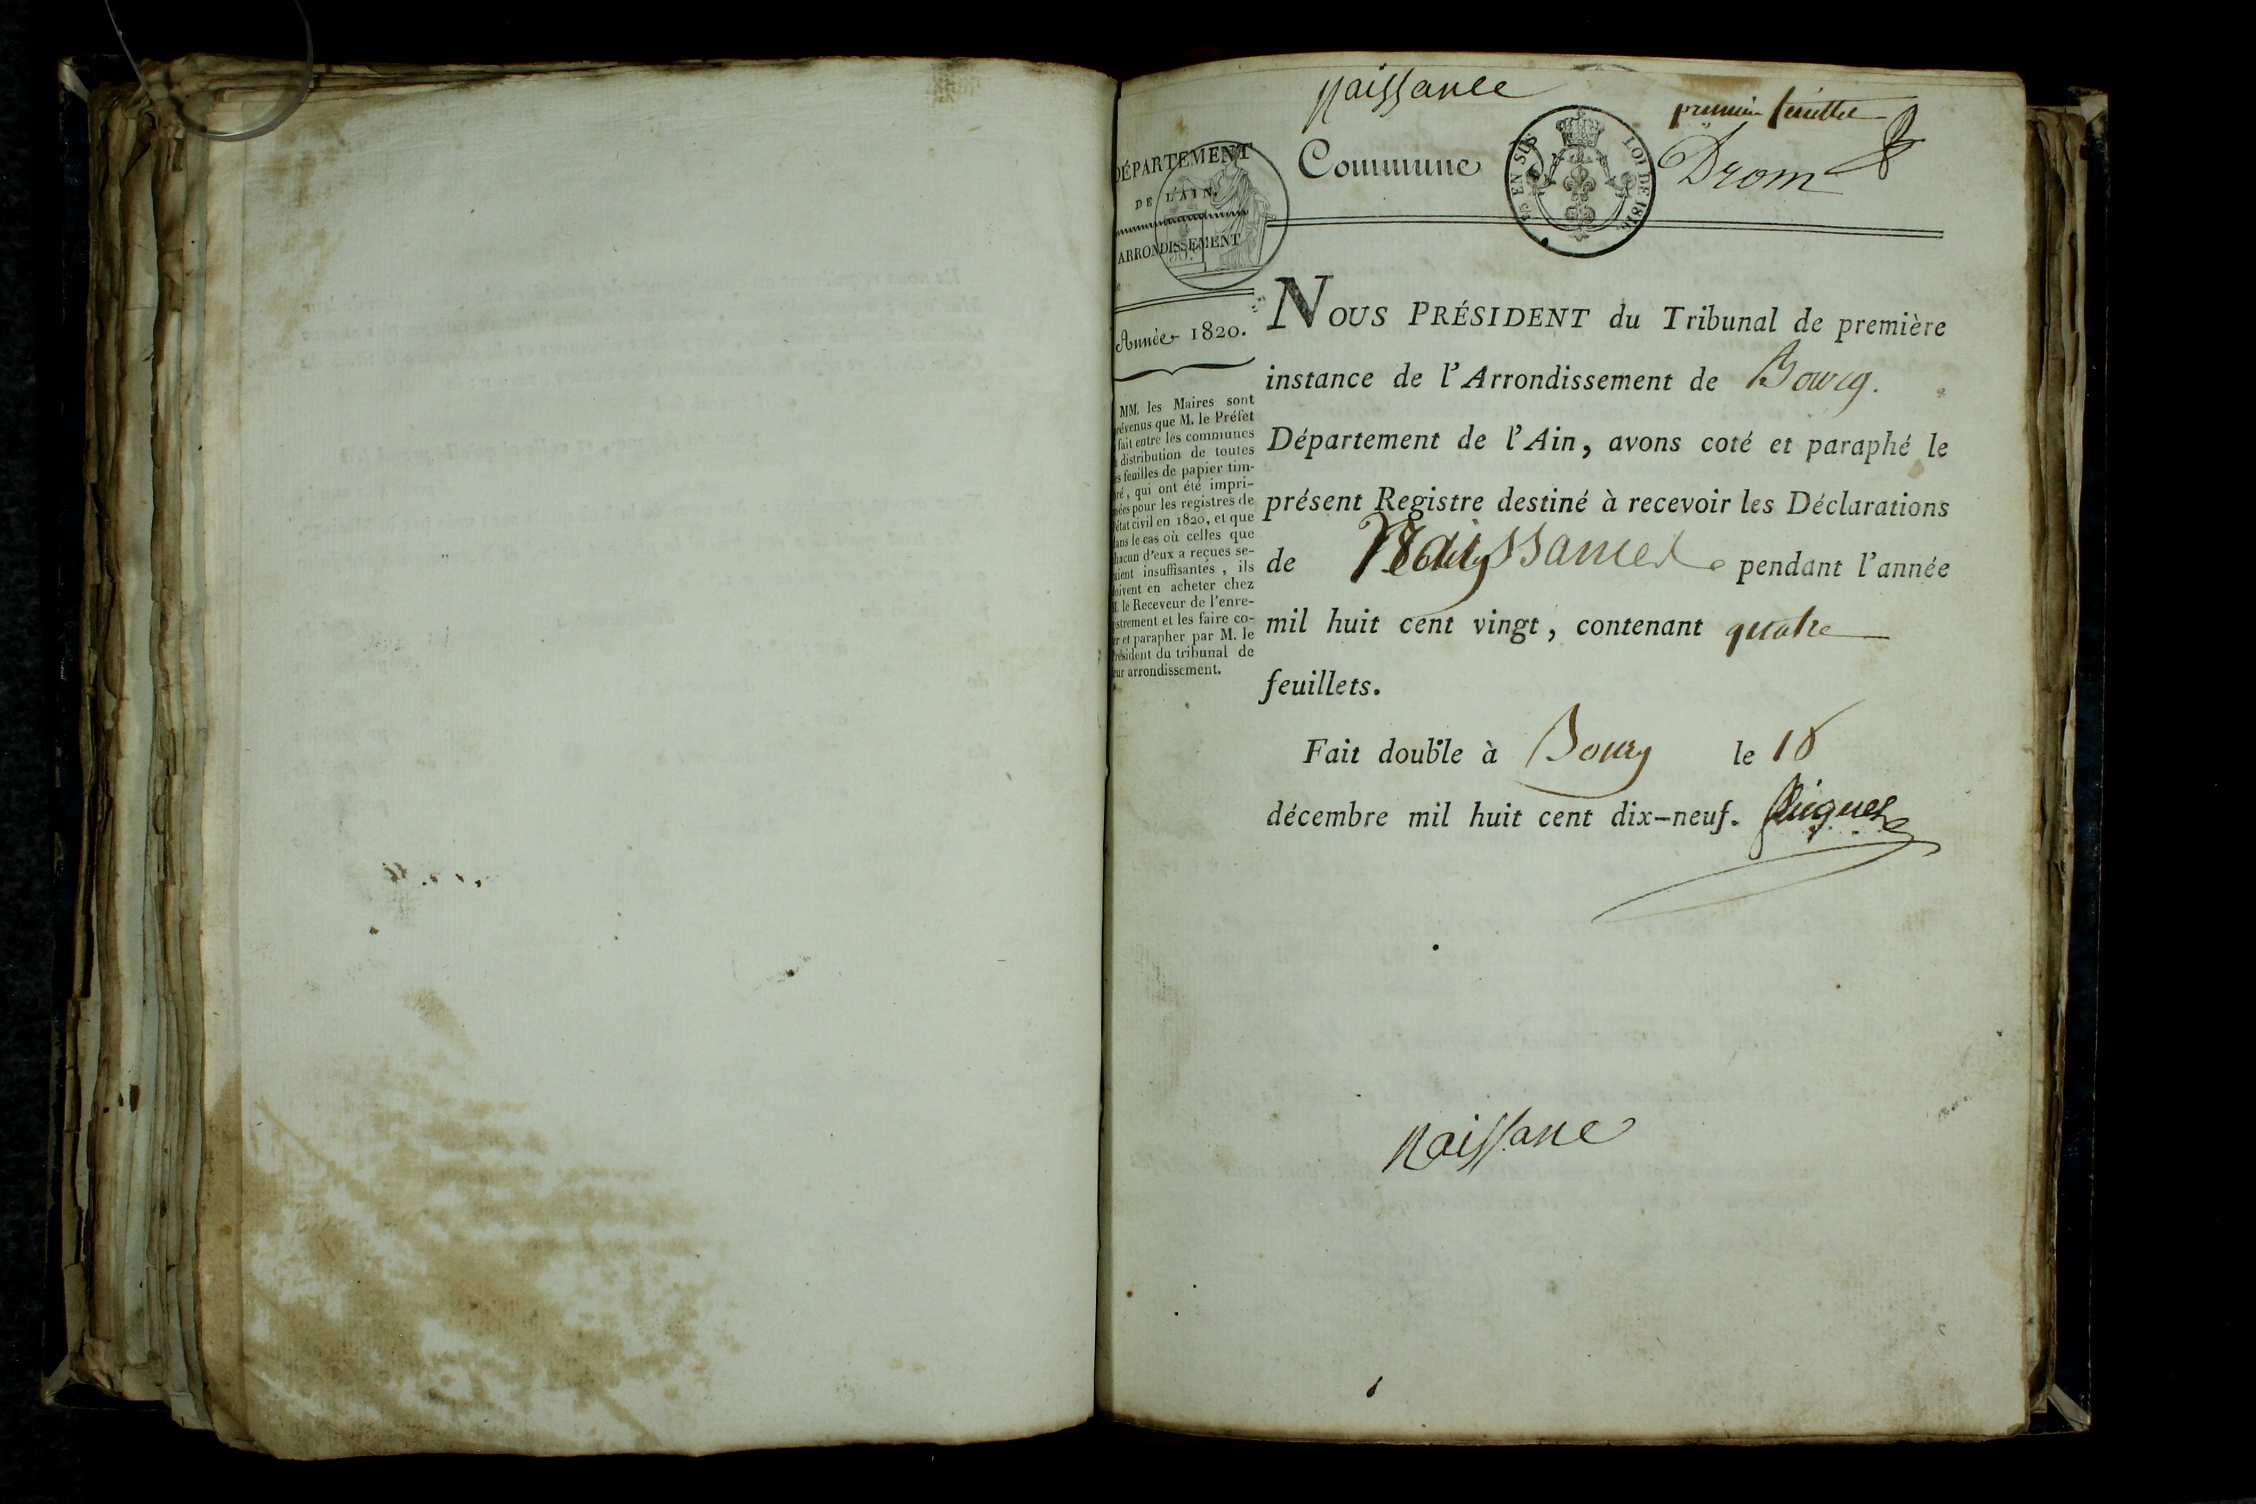 Naissance
premier feuillet
DÉPARTEMENT
DE L'AIN.
ARRONDISSEMENT
Commune
25 EN SUS
LOI DE 1816
Drom
Année 1820.
MM. les Maires sont
révenus que M. le Préfet
fait entre les communes
distribution de toutes
es feuilles de papier tim-
ré, qui ont été impri-
ées pour les registres de
état civil en 1820, et que
ans le cas où celles que
hacun d'eux a reçues se-
aient insuffisantes, ils
oivent en acheter chez
. le Receveur de l'enre-
istrement et les faire co-
er et parapher par M. le
résident du tribunal de
eur arrondissement.
NOUS PRÉSIDENT du Tribunal de première
instance de l'Arrondissement de Bourg.
Département de l'Ain, avons coté et paraphé le
présent Registre destiné à recevoir les Déclarations
de Naissances pendant l'année
mil huit cent vingt, contenant quatre
feuillets.
Fait double à Bourg le 18
décembre mil huit cent dix-neuf.
Naissance